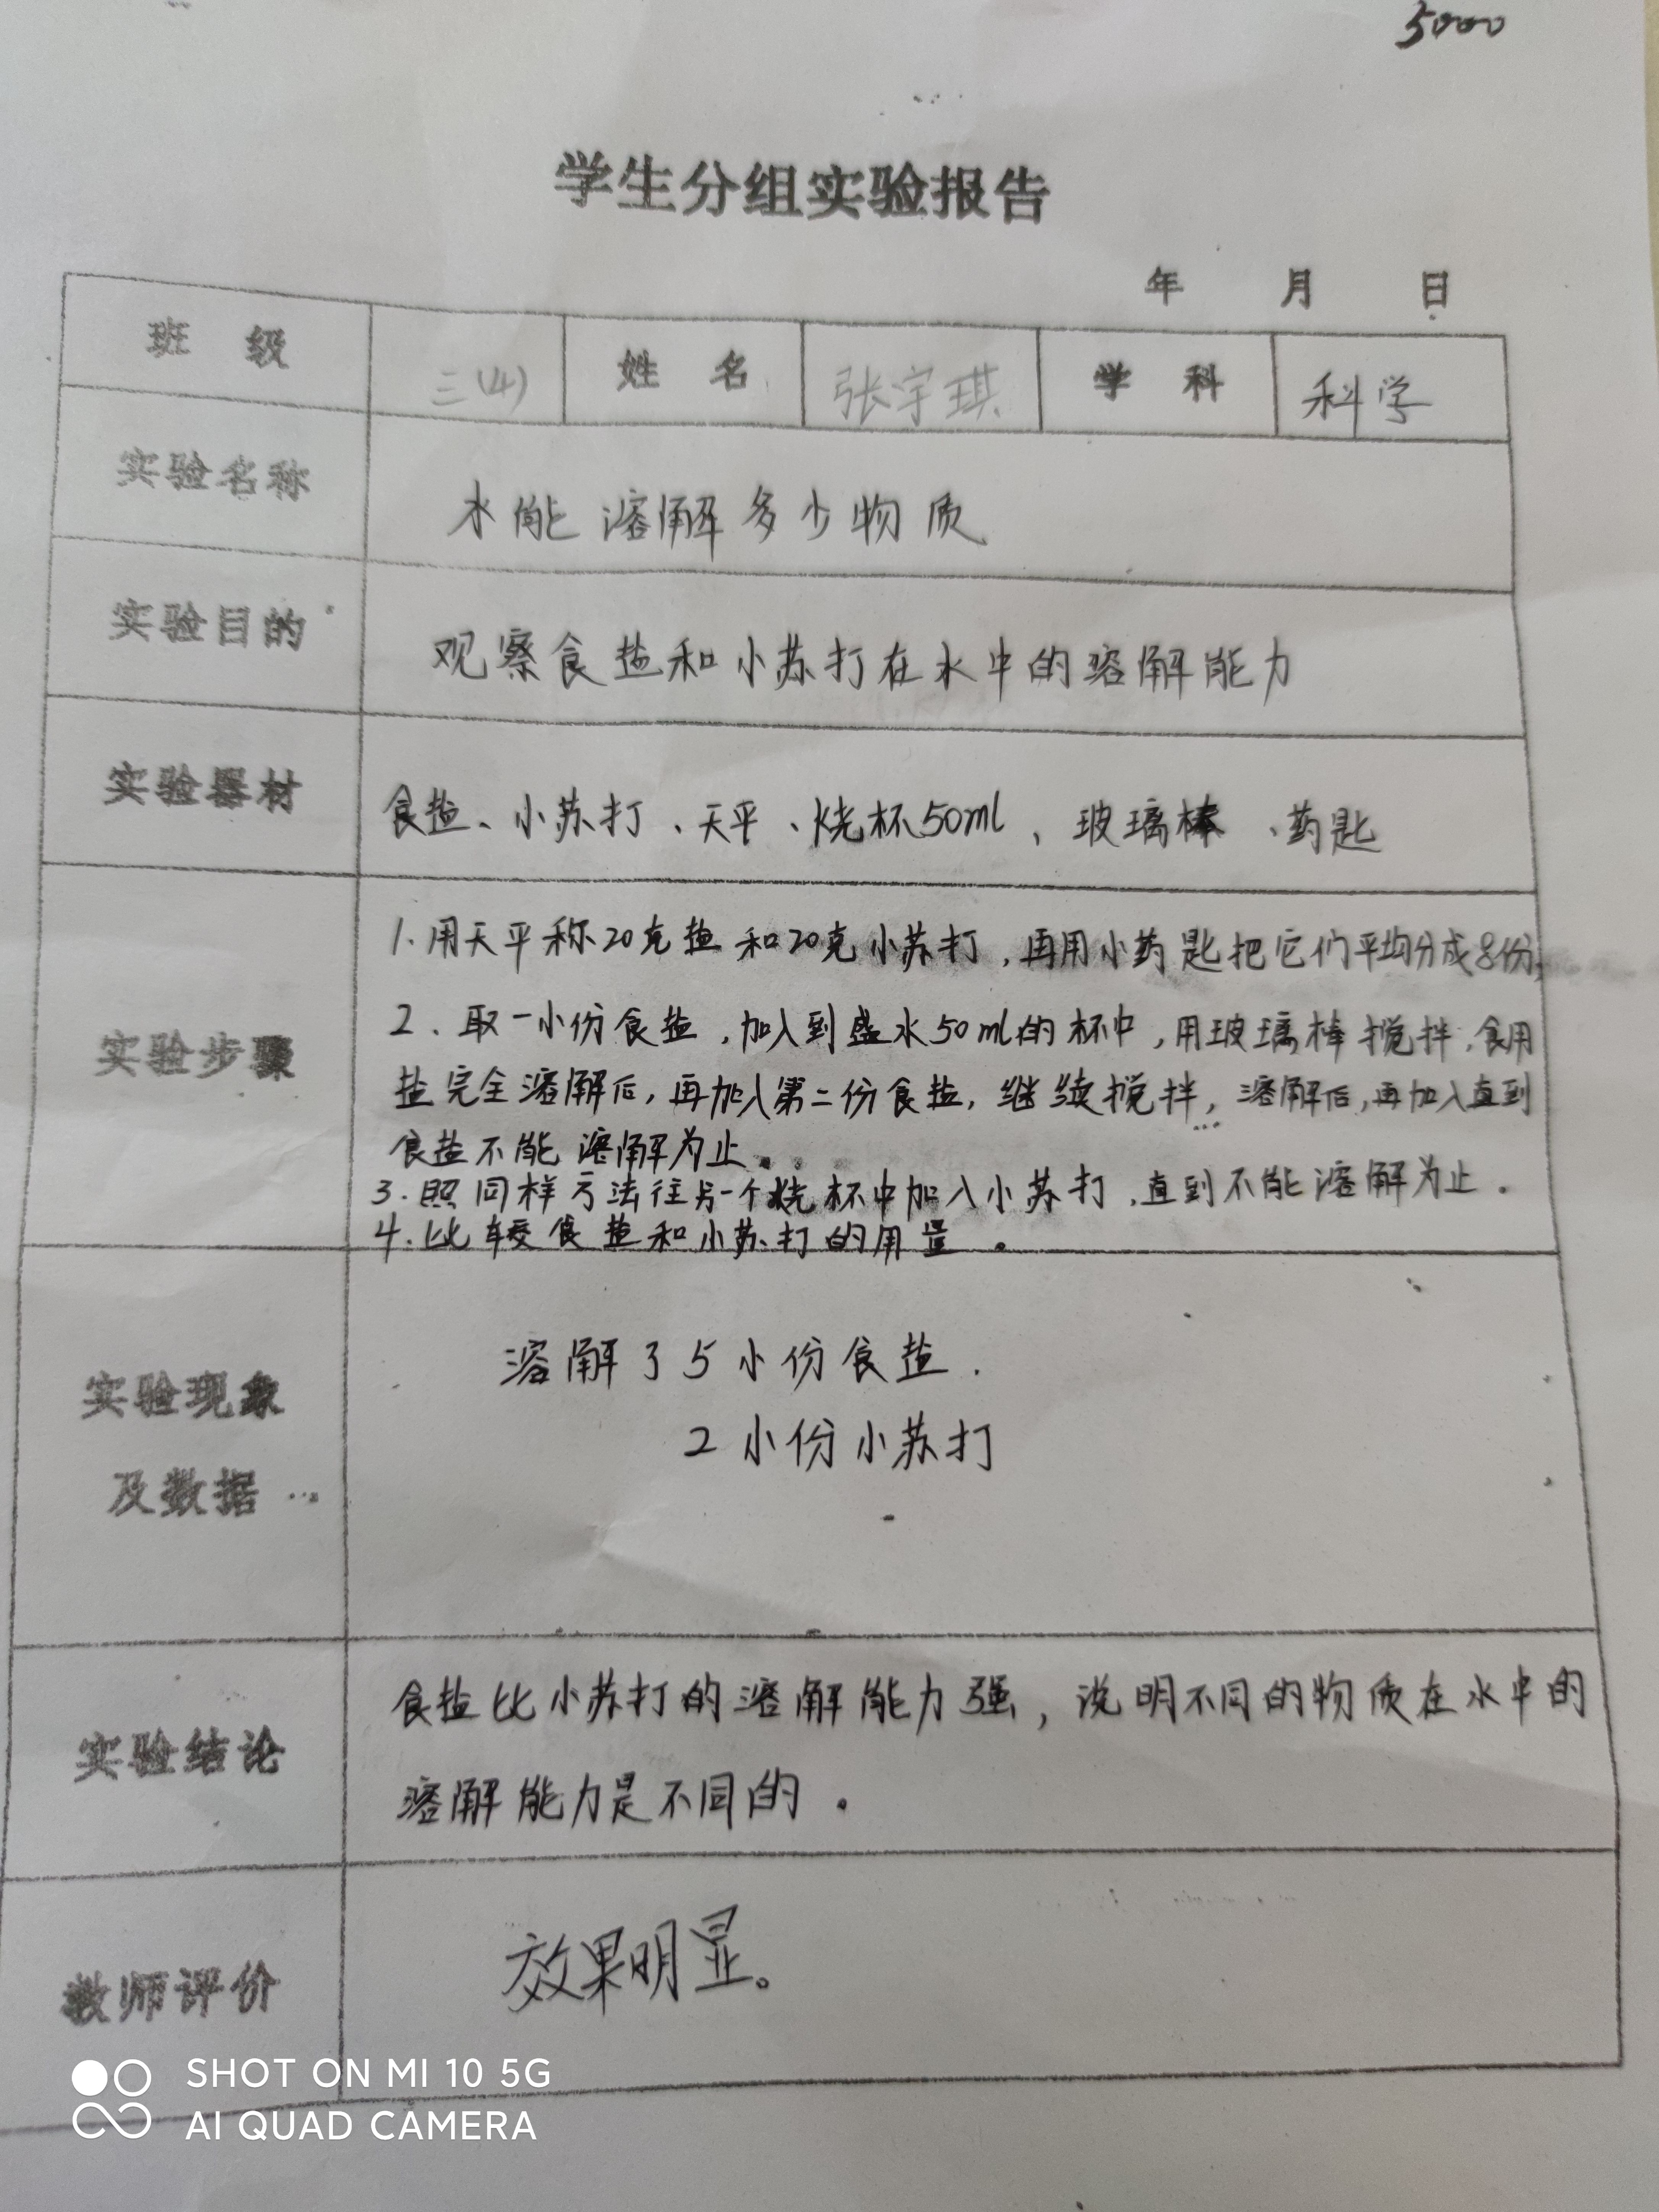 5000
学生分组实验报告
年 月 日
班 级 三(4) 姓 名 张宇琪 学 科 科学
实验名称 水能溶解多少物质
实验目的 观察食盐和小苏打在水中的溶解能力
实验器材 食盐、小苏打、天平、烧杯50ml、玻璃棒、药匙
实验步骤
1.用天平称20克盐和20克小苏打,再用小药匙把它们平均分成8份;
2、取一小份食盐,加入到盛水50ml的杯中,用玻璃棒搅拌,食用
盐完全溶解后,再加入第二份食盐,继续搅拌,溶解后,再加入直到
食盐不能溶解为止。
3.照同样方法往另一个烧杯中加入小苏打,直到不能溶解为止。
4.比较食盐和小苏打的用量。
实验现象
及数据
溶解了5小份食盐.
2小份小苏打
实验结论
食盐比小苏打的溶解能力强,说明不同的物质在水中的
溶解能力是不同的。
教师评价 效果明显。
SHOT ON MI 10 5G
AI QUAD CAMERA